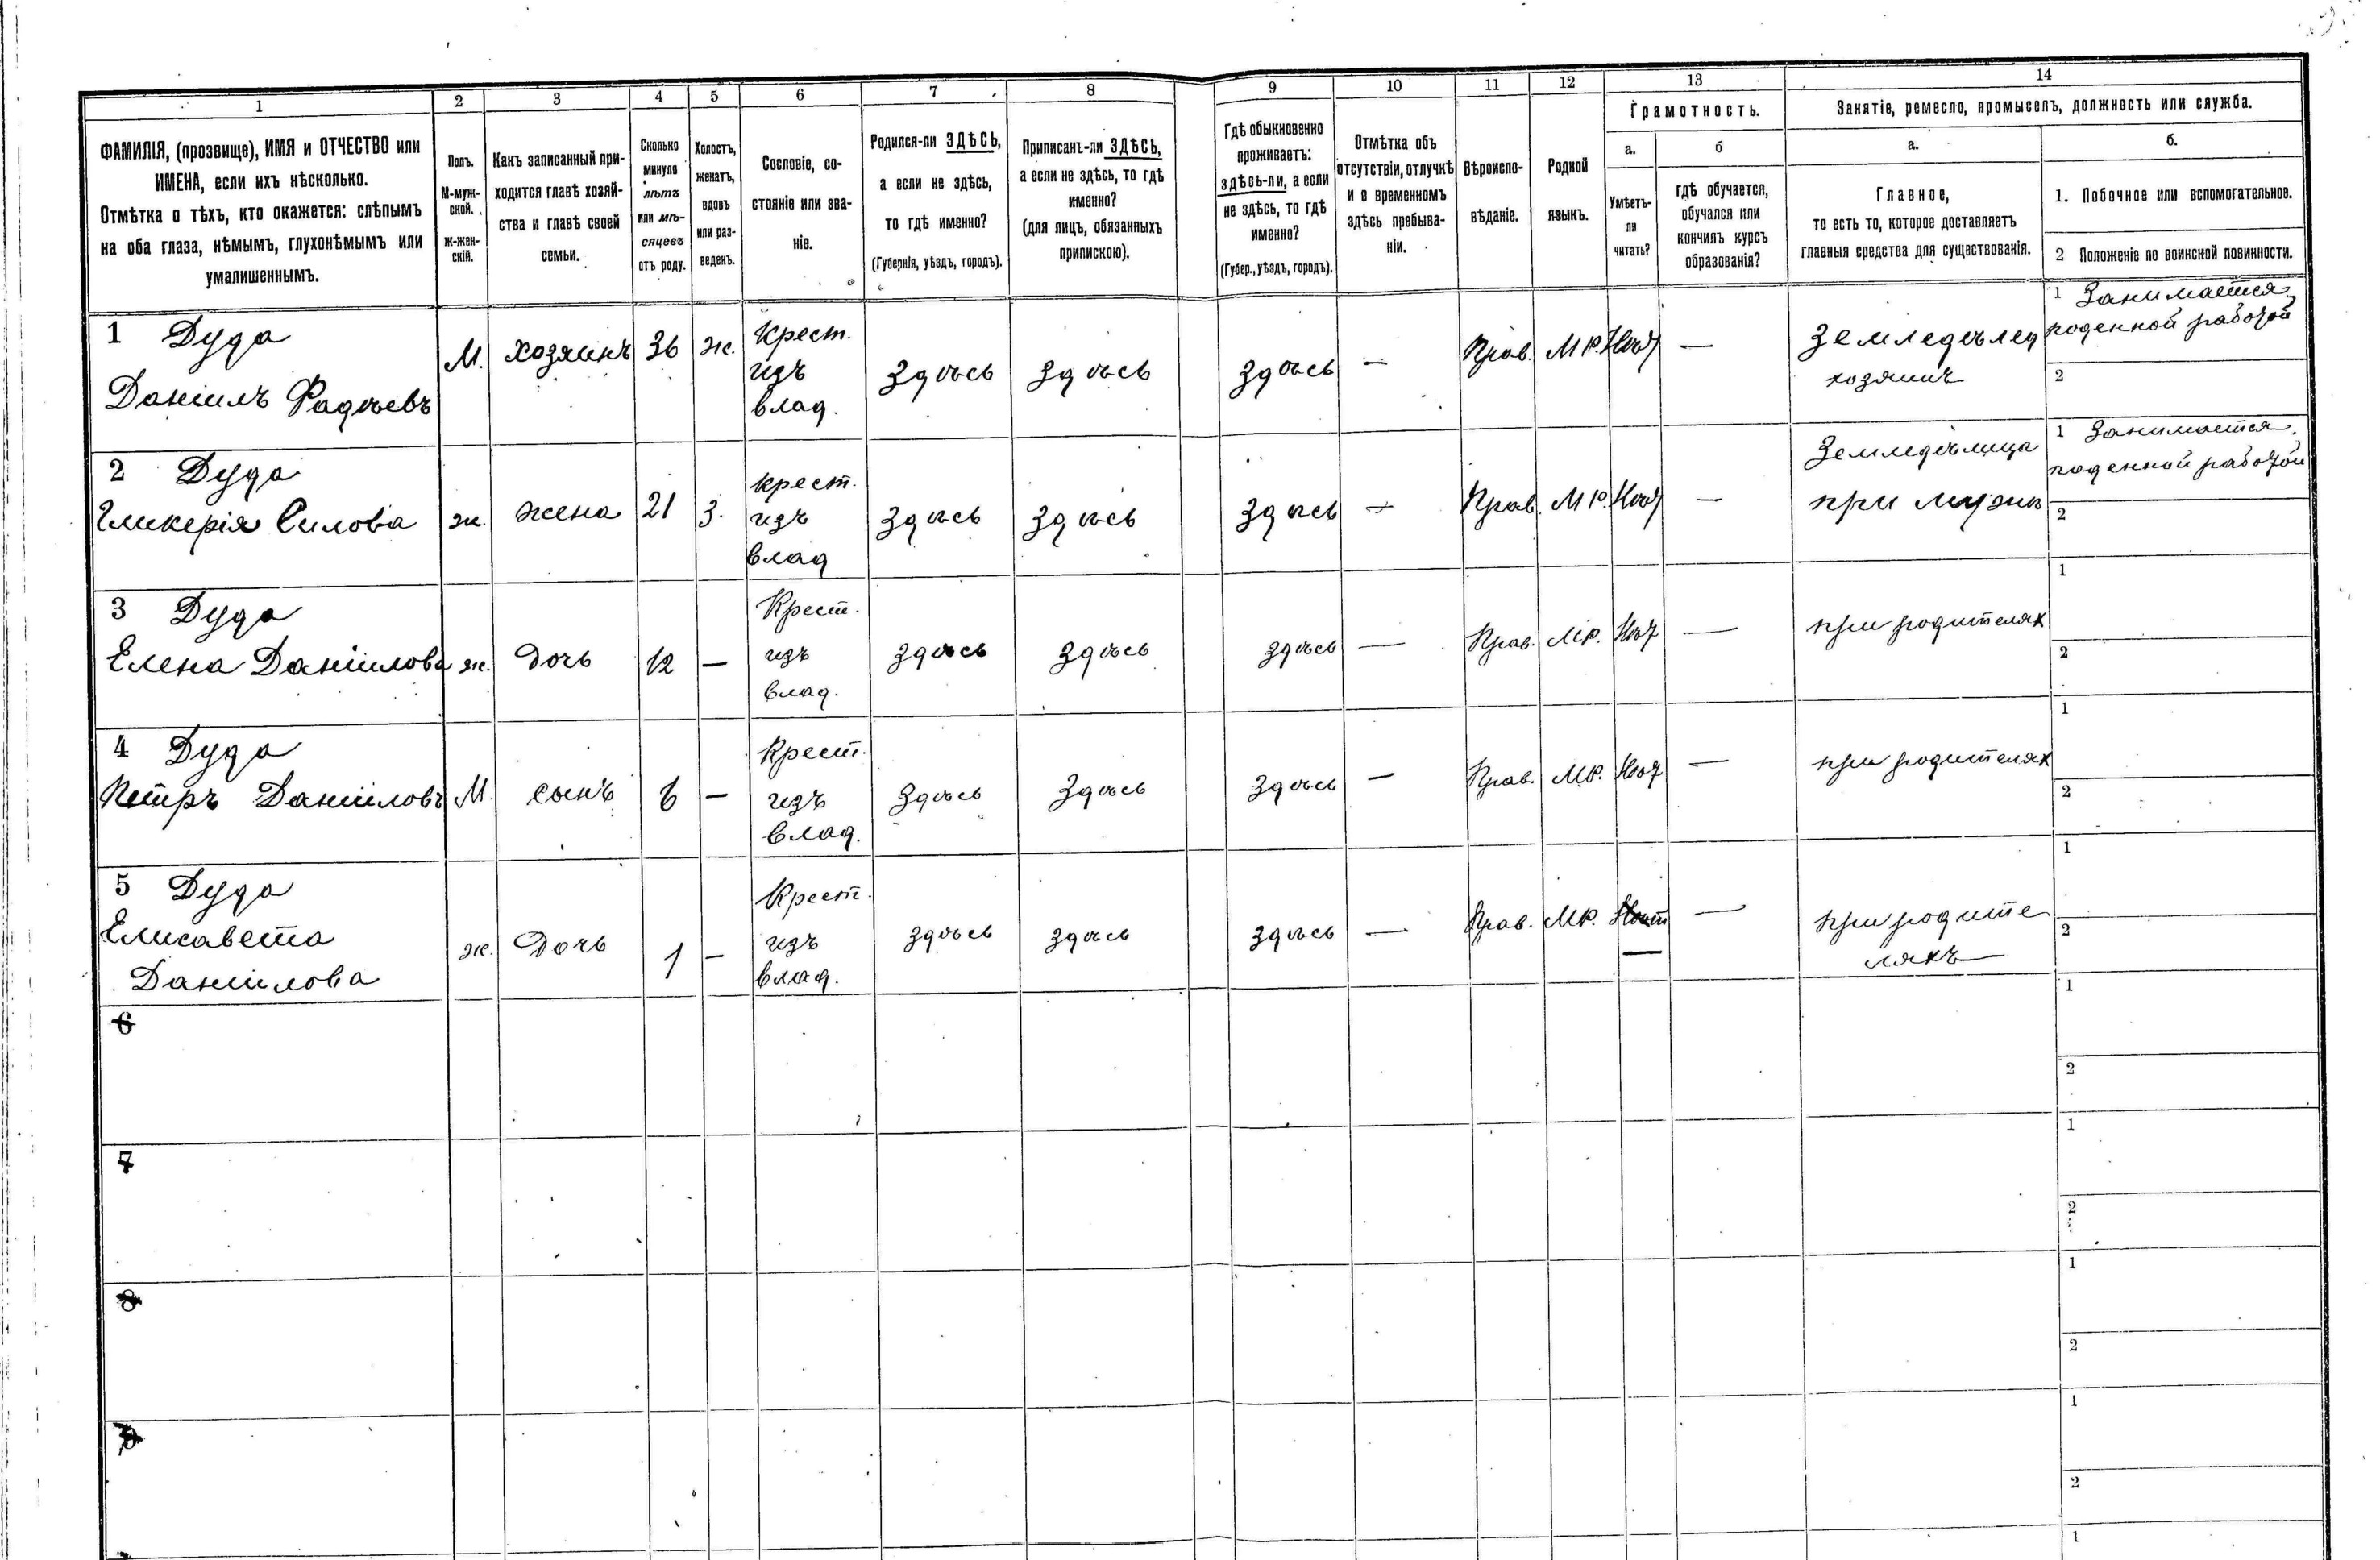 1 2 3 4 5 6 7 8 9 10 11 12 13 14
ФАМИЛІЯ, (прозвище), ИМЯ и ОТЧЕСТВО или
ИМЕНА, если ихъ нѣсколько.
Отмѣтка о тѣхъ, кто окажется: слѣпымъ
на оба глаза, нѣмымъ, глухонѣмымъ или
умалишеннымъ.
Полъ.
М-муж-
ской.
Ж-жен-
скій.
Какъ записанный при-
ходится главѣ хозяй-
ства и главѣ своей
семьи.
Сколько
минуло
лѣтъ
или мѣ-
сяцевъ
отъ роду.
Холостъ,
женатъ,
вдовъ
или раз-
веденъ.
Сословіе, со-
стояніе или зва-
ніе.
Родился-ли ЗДѢСЬ,
а если не здѣсь,
то гдѣ именно?
(Губернія, уѣздъ, городъ).
Приписанъ-ли ЗДѢСЬ,
а если не здѣсь, то гдѣ
именно?
(для лицъ, обязанныхъ
припискою).
Гдѣ обыкновенно
проживаетъ:
здѣсь-ли, а если
не здѣсь, то гдѣ
именно?
(Губер., уѣздъ, городъ).
Отмѣтка объ
отсутствіи, отлучкѣ
и о временномъ
здѣсь пребыва-
ніи.
Вѣроиспо-
вѣданіе.
Родной
языкъ.
Грамотность.
а.
Умѣетъ-
ли
читать?
б
гдѣ обучается,
обучался или
кончилъ курсъ
образованія?
Занятіе, ремесло, промыселъ, должность или служба.
а.
Главное,
то есть то, которое доставляетъ
главныя средства для существованія.
б.
1. Побочное или вспомогательное.
2 Положеніе по воинской повинности.
1 Дуда
Даніилъ Фадѣевъ
М.
хозяинъ
36
ж.
Крест.
изъ
влад.
Здѣсь
Здѣсь
Здѣсь
—
Прав.
М.Р.
Нѣт
—
Земледѣлец
хозяинъ
1 Занимается
поденной работой
2
2 Дуда
Гликерія Силова
ж.
жена
21
З.
крест.
изъ
влад
Здѣсь
Здѣсь
Здѣсь
—
Прав.
М.Р.
Нѣт
—
Земледѣлица
при мужѣ
1 Занимается
поденной работой
2
3 Дуда
Елена Даніилова
ж.
Дочь
12
—
Крест.
изъ
влад.
Здѣсь
Здѣсь
Здѣсь
—
Прав.
М.Р.
Нѣт
—
при родителях
1
2
4 Дуда
Петръ Даніиловъ
М.
сынъ
6
—
Крест.
изъ
влад.
Здѣсь
Здѣсь
Здѣсь
—
Прав.
М.Р.
Нѣт
—
при родителях
1
2
5 Дуда
Елисавета
Даніилова
ж.
Дочь
1
—
Крест.
изъ
влад.
здѣсь
здѣсь
здѣсь
—
Прав.
М.Р.
—
—
при родите
ляхъ
1
2
6
1
2
7
1
2
8
1
2
9
1
2
1